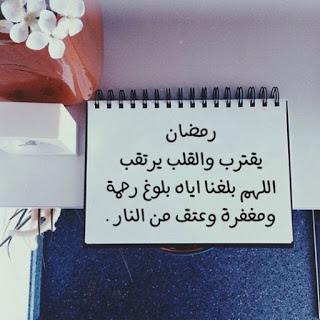 رمضان
يقترب والقلب يرتقب
اللهم بلغنا اياه بلوغ رحمة
ومغفرة وعتق من النار .